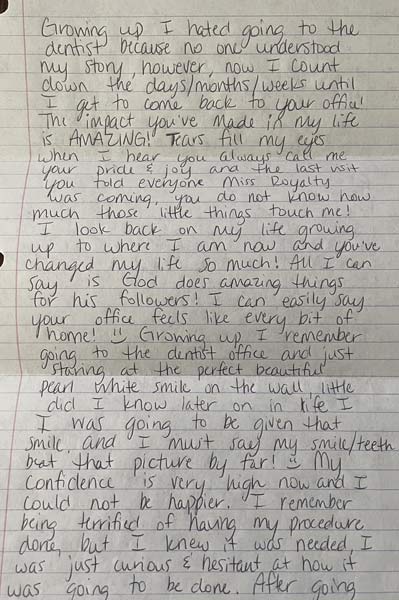 Growing up I hated going to the
dentist because no one understood
my story, however, now I count
down the days/months/weeks until
I get to come back to your office!
The impact you've made in my life
is AMAZING! Tears fill my eyes
when I hear you always call me
your pride & joy and the last visit
you told everyone Miss Royalty
was coming, you do not know how
much those little things touch me!
I look back on my life growing
up to where I am now and you've
changed my life so much! All I can
say is God does amazing things
for his followers! I can easily say
your office feels like every bit of
home! Growing up I remember
going to the dentist office and just
staring at the perfect beautiful
pearl white smile on the wall, little
did I know later on in life I
I was going to be given that
smile, and I must say my smile/teeth
beat that picture by far! My
confidence is very high now and I
could not be happier. I remember
being terrified of having my procedure
done, but I knew it was needed, I
was just curious & hesitant at how it
was going to be done. After going